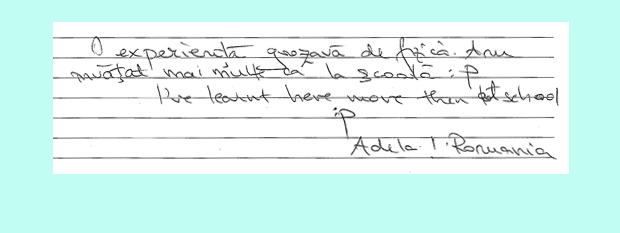 O experiență groazavă de fizică. Am
învățat mai multe ca la școală :P
I've learnt here more then at school
:P
Adela ! Romania